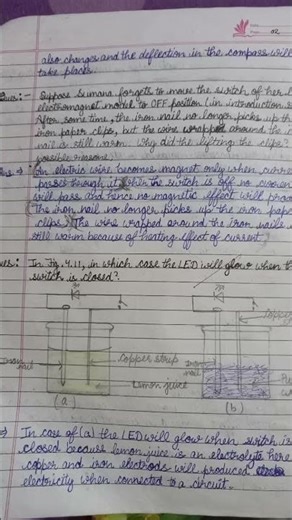 02
also changes and the deflection in the compass will
take place.
Ques :- Suppose Sumana forgets to move the switch of her
electromagnet model to OFF position (in introduction
After some time, the iron nail no longer picks up the
iron paper clips, but the wire wrapped around the
nail is still warm. Why did the lifting the clips?
possible reasons.
An electric wire becomes magnet only when current
passes through it. when the switch is off no current
will pass and hence no magnetic effect will
The iron nail no longer picks up the iron paper
clips. The wire wrapped around the iron nail
still warm because of heating effect of current.
In Fig. 4.11, in which case the LED will glow when the
switch is closed?
Iron
nail
Copper strip
Lemon juice
Iron
nail
(a)
(b)
In case of (a) the LED will glow when switch is
closed because lemon juice is an electrolyte here
copper and iron electrods will produced
electricity when connected to a circuit.